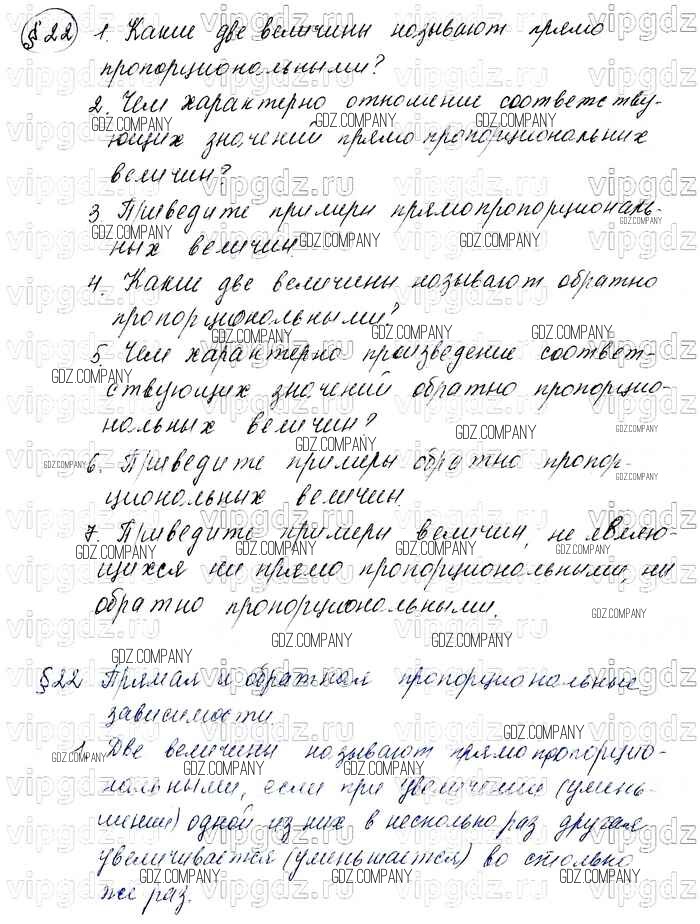 §22 1. Какие две величины называют прямо
пропорциональными?
2. Чем характерно отношение соответству-
ющих значений прямо пропорциональных
величин?
3. Приведите примеры прямо пропорциональ-
ных величин.
4. Какие две величины называют обратно
пропорциональными?
5. Чем характерно произведение соответ-
ствующих значений обратно пропорцио-
нальных величин?
6. Приведите примеры обратно пропор-
циональных величин.
7. Приведите примеры величин, не являю-
щихся ни прямо пропорциональными, ни
обратно пропорциональными.
§22 Прямая и обратная пропорциональные
зависимости
1. Две величины называют прямо пропорцио-
нальными, если при увеличении (умень-
шении) одной из них в несколько раз другая
увеличивается (уменьшается) во столько
же раз.
vipgdz.ru
GDZ.COMPANY